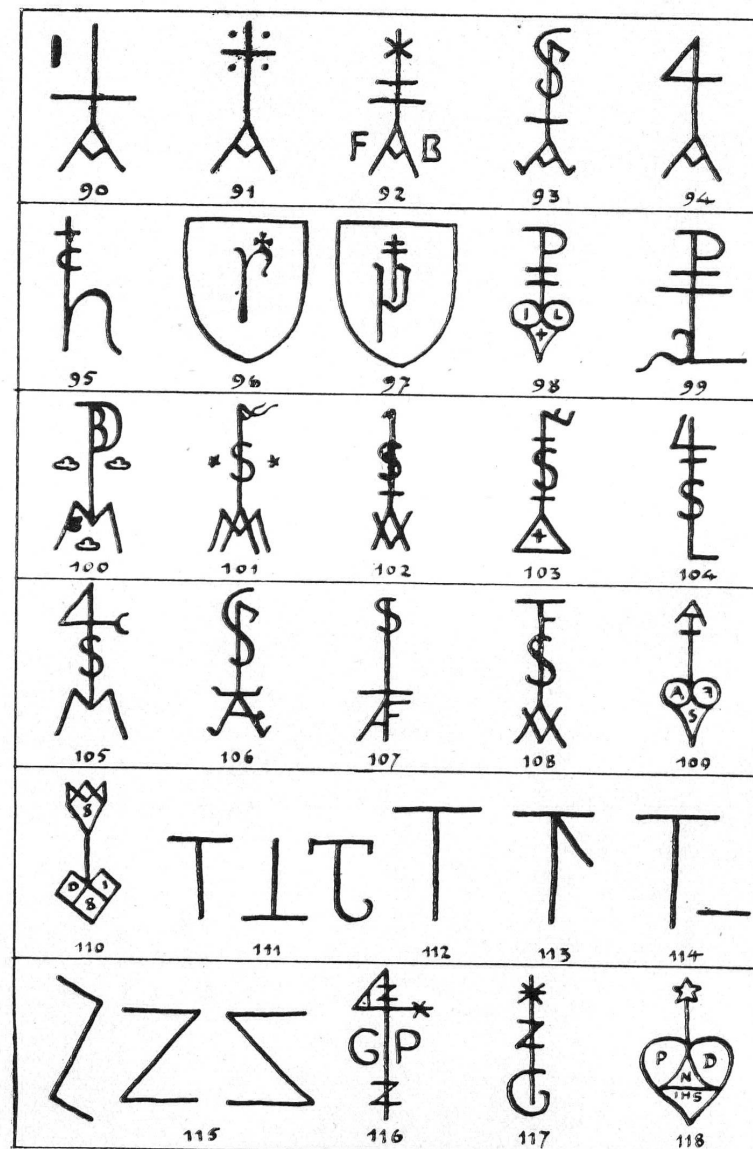 F B
90 91 92 93 94
I L
95 96 97 98 99
100 101 102 103 104
A F
S
105 106 107 108 109
8
D I
8
110 111 112 113 114
G P
P D
N
IHS
115 116 117 118